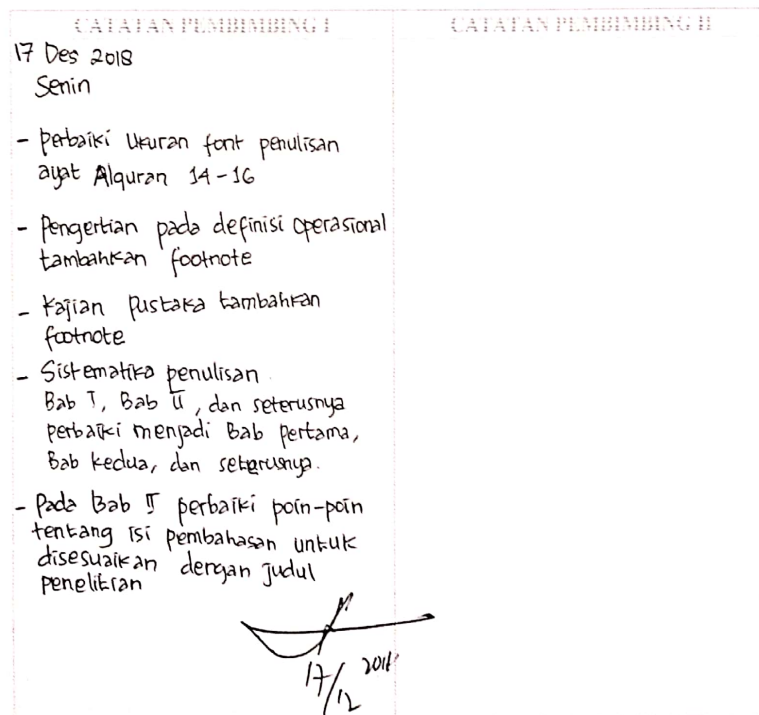 CATATAN PEMBIMBING I
CATATAN PEMBIMBING II
17 Des 2018
Senin
- perbaiki Ukuran font penulisan
ayat Alquran 14-16
- Pengertian pada definisi operasional
tambahkan footnote
- Kajian Pustaka tambahkan
footnote
- Sistematika penulisan
Bab I, Bab II, dan seterusnya
perbaiki menjadi Bab pertama,
Bab kedua, dan seterusnya.
- Pada Bab II perbaiki poin-poin
tentang isi pembahasan untuk
disesuaikan dengan judul
penelitian
17/12 2018